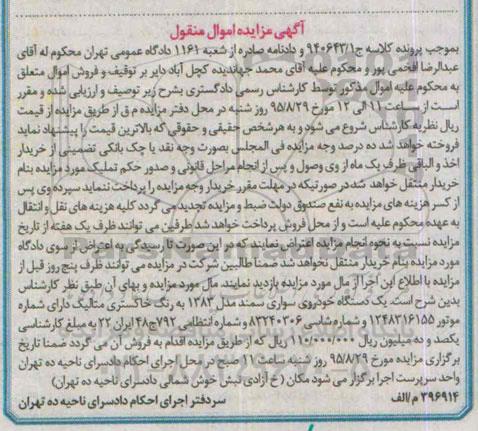 آگهی مزایده اموال منقول
بموجب پرونده کلاسه ج۹۴۰۶۴۳/۱ و دادنامه صادره از شعبه ۱۱۶۱ دادگاه عمومی تهران محکوم له آقای
عبدالرضا افخمی پور و محکوم علیه آقای محمد جهاندیده کچل آباد دایر بر توقیف و فروش اموال متعلق
به محکوم علیه اموال مذکور توسط کارشناس رسمی دادگستری بشرح زیر توصیف و ارزیابی شده و مقرر
است از ساعت ۱۱ الی ۱۲ مورخ ۹۵/۸/۲۹ روز شنبه در محل دفتر مزایده م ق از طریق مزایده از قیمت
ریال نظریه کارشناس شروع می شود و به هرشخص حقیقی و حقوقی که بالاترین قیمت را پیشنهاد نماید
فروخته خواهد شد ده درصد وجه مزایده فی المجلس بصورت وجه نقد یا چک بانکی تضمینی از خریدار
اخذ و الباقی ظرف یک ماه از وی وصول و پس از انجام مراحل قانونی و صدور حکم تملیک مورد مزایده بنام
خریدار منتقل خواهد شد در صورتیکه در مهلت مقرر خریدار وجه مزایده را پرداخت ننماید سپرده وی پس
از کسر هزینه های مزایده به نفع صندوق دولت ضبط و مزایده تجدید می گردد کلیه هزینه های نقل و انتقال
به عهده محکوم علیه است و از محل فروش پرداخت خواهد شد طرفین می توانند ظرف یک هفته از تاریخ
مزایده نسبت به نحوه انجام مزایده اعتراض نمایند که در این صورت تا رسیدگی به اعتراض از سوی دادگاه
مورد مزایده بنام خریدار منتقل نخواهد شد ضمنا طالبین شرکت در مزایده می توانند ظرف پنج روز قبل از
مزایده با اطلاع این اجرا از مال مورد مزایده بازدید نمایند. مال مورد مزایده و بهای آن طبق نظر کارشناس
بدین شرح است. یک دستگاه خودروی سواری سمند مدل ۱۳۸۳ به رنگ خاکستری متالیک دارای شماره
موتور ۱۲۴۸۳۱۶۱۵۵ و شماره شاسی ۸۳۲۴۰۳۰۶ و شماره انتظامی ۷۹۲ج۴۸ ایران ۲۲ به مبلغ کارشناسی
یکصد و ده میلیون ریال ۱۱۰/۰۰۰/۰۰۰ ریال که از طریق مزایده اقدام به فروش آن می گردد ضمنا تاریخ
برگزاری مزایده مورخ ۹۵/۸/۲۹ روز شنبه ساعت ۱۱ صبح در محل اجرای احکام دادسرای ناحیه ده تهران
واحد سرپرست اجرا برگزار می شود مکان ( خ آزادی نبش خوش شمالی دادسرای ناحیه ده تهران)
۳۹۶۹۱۴ م/الف سردفتر اجرای احکام دادسرای ناحیه ده تهران